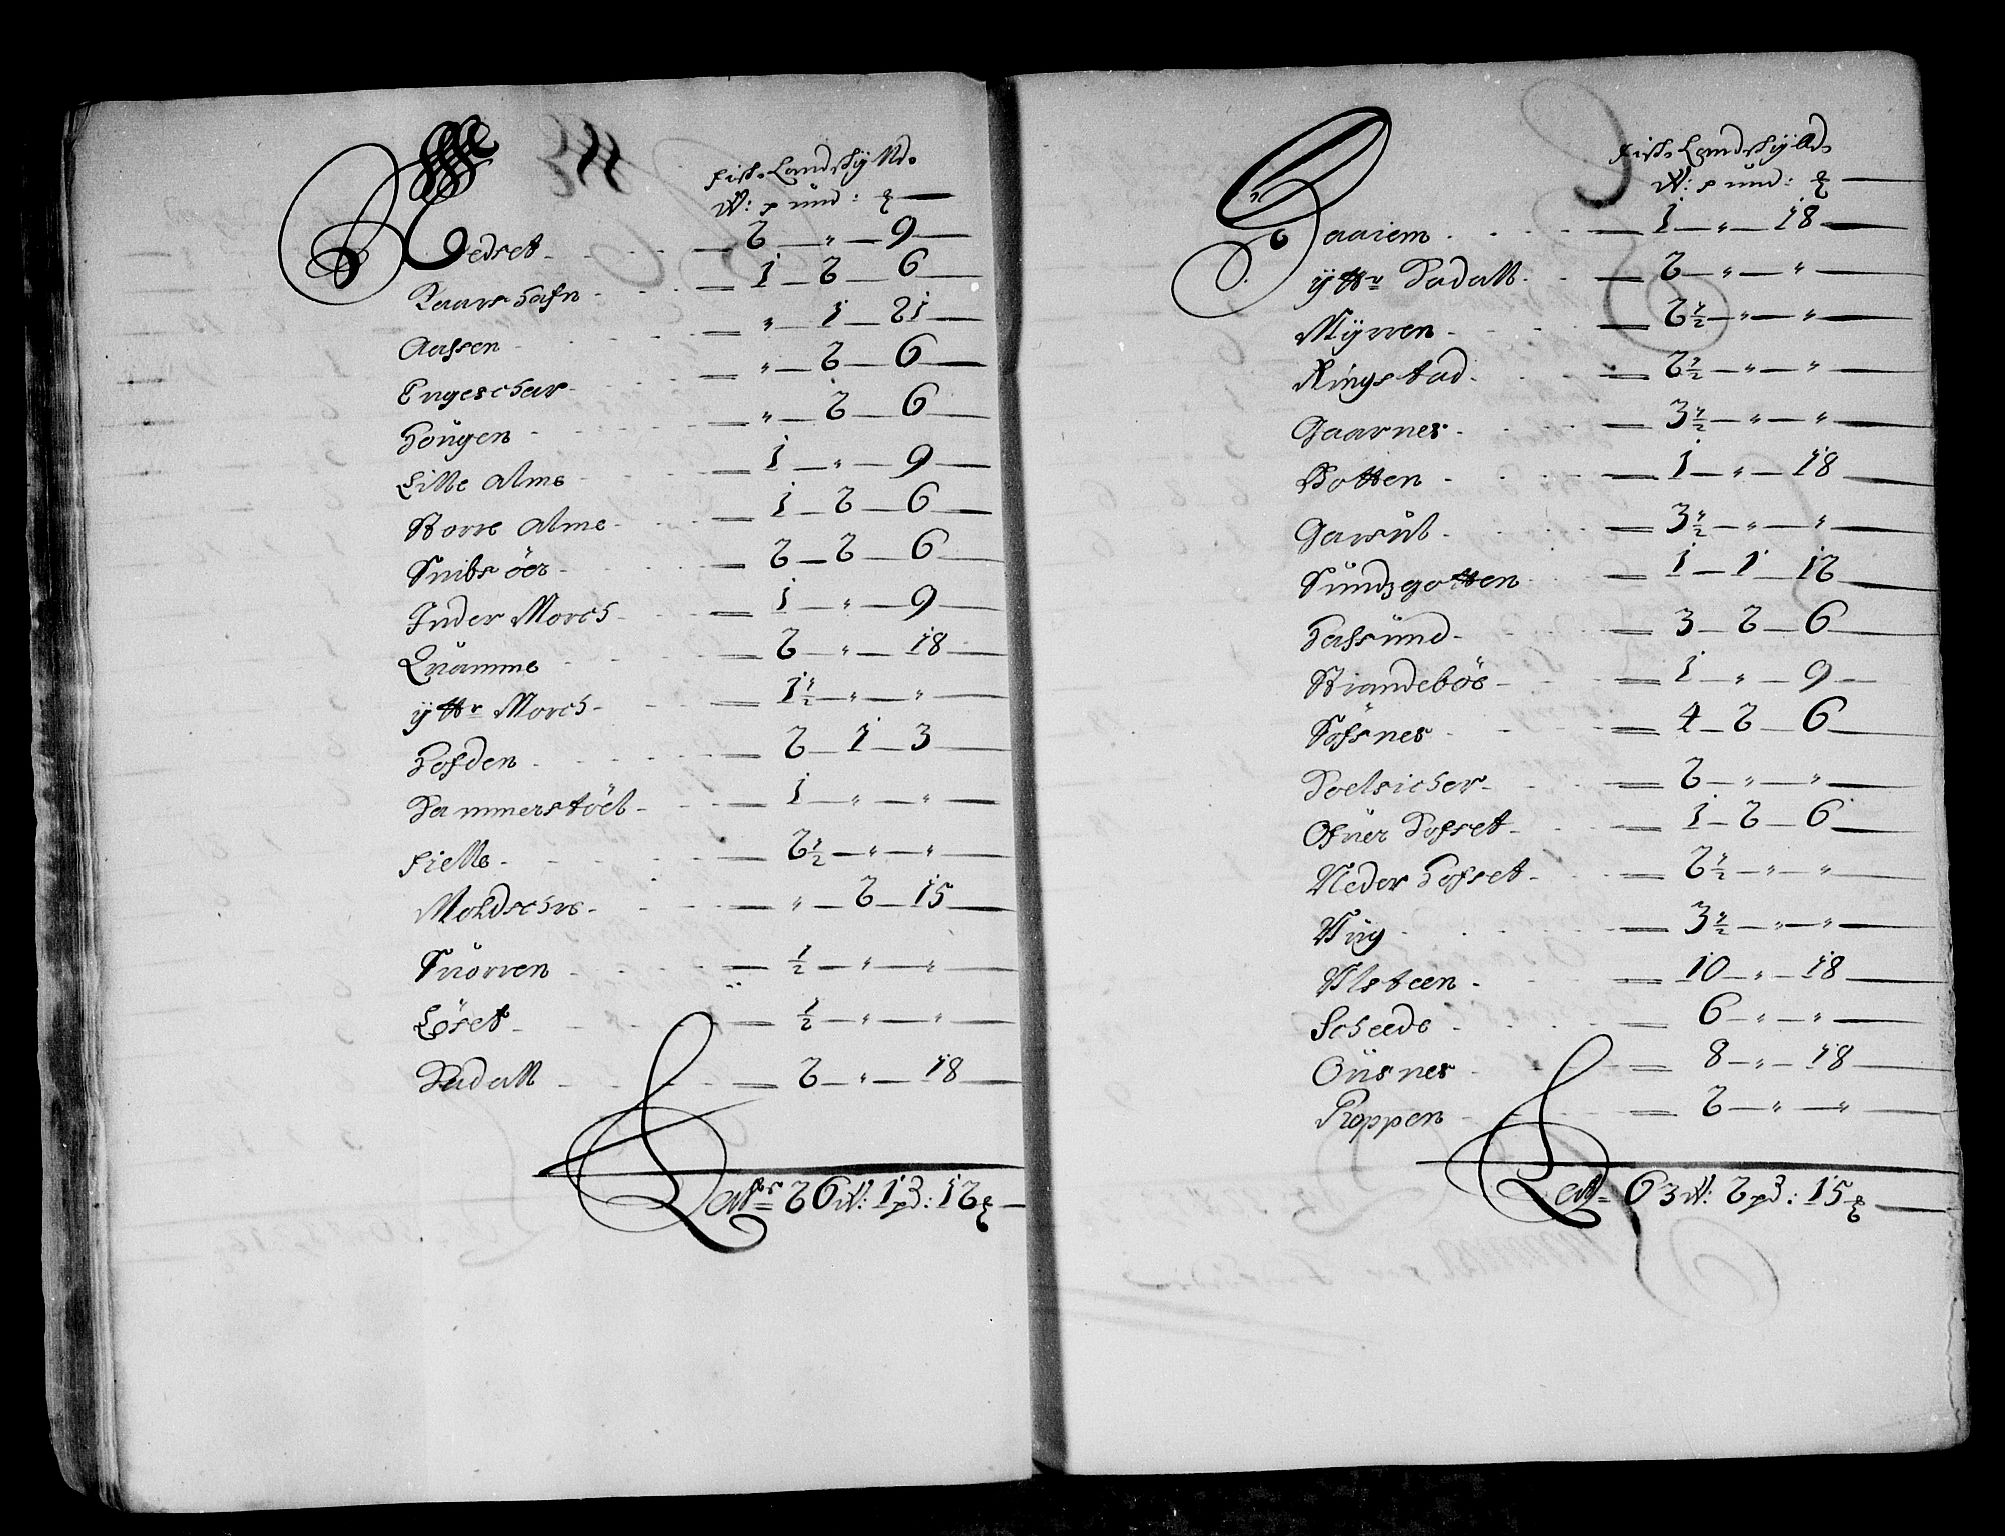 Fisk. Landskÿld.
W: pund: ℔
Vedset — 2 — " — 9
Raarshafn — 1 — 2 — 6
Aassen — " — 1 — 21
Engeschar — " — 2 — 6
Hougen — " — 2 — 6
Lille Alme — 1 — " — 9
Storre Alme — 1 — 2 — 6
Snibsöer — 2 — 2 — 6
Inder Morch — 1 — " — 9
Qvamme — 2 — " — 18
ÿttr Morch — 1½ — " — "
Hofden — 2 — 1 — 3
Hammerstöel — 1 — " — "
Fielle — 2½ — " — "
Moldschre — " — 2 — 15
Snörren — ½ — " — "
Löset — ½ — " — "
Dadall — 2 — " — 18
Latrs 26 W: 1 pd: 12 ℔
Fisk. Landskÿld.
W: pund: ℔
Gaaiem — 1 — " — 18
ÿttr Dadall — 2 — " — "
Mÿrren — 2½ — " — "
Ringstad — 2½ — " — "
Gaarnes — 3½ — " — "
Botten — 1 — " — 18
Garsul — 3½ — " — "
Sundzgotten — 1 — 1 — 12
Hafsund — 3 — 2 — 6
Brandeböe — 1 — " — 9
Söfsnes — 4 — 2 — 6
Doelsicher — 2 — " — "
Ofuer Hofset — 1 — 2 — 6
Neder Hofset — 2½ — " — "
Wiig — 3½ — " — "
Ulsteen — 10 — " — 18
Scheede — 6 — " — "
Öusnes — 8 — " — 18
Roppen — 2 — " — "
Lat 63 W: 2 pd: 15 ℔